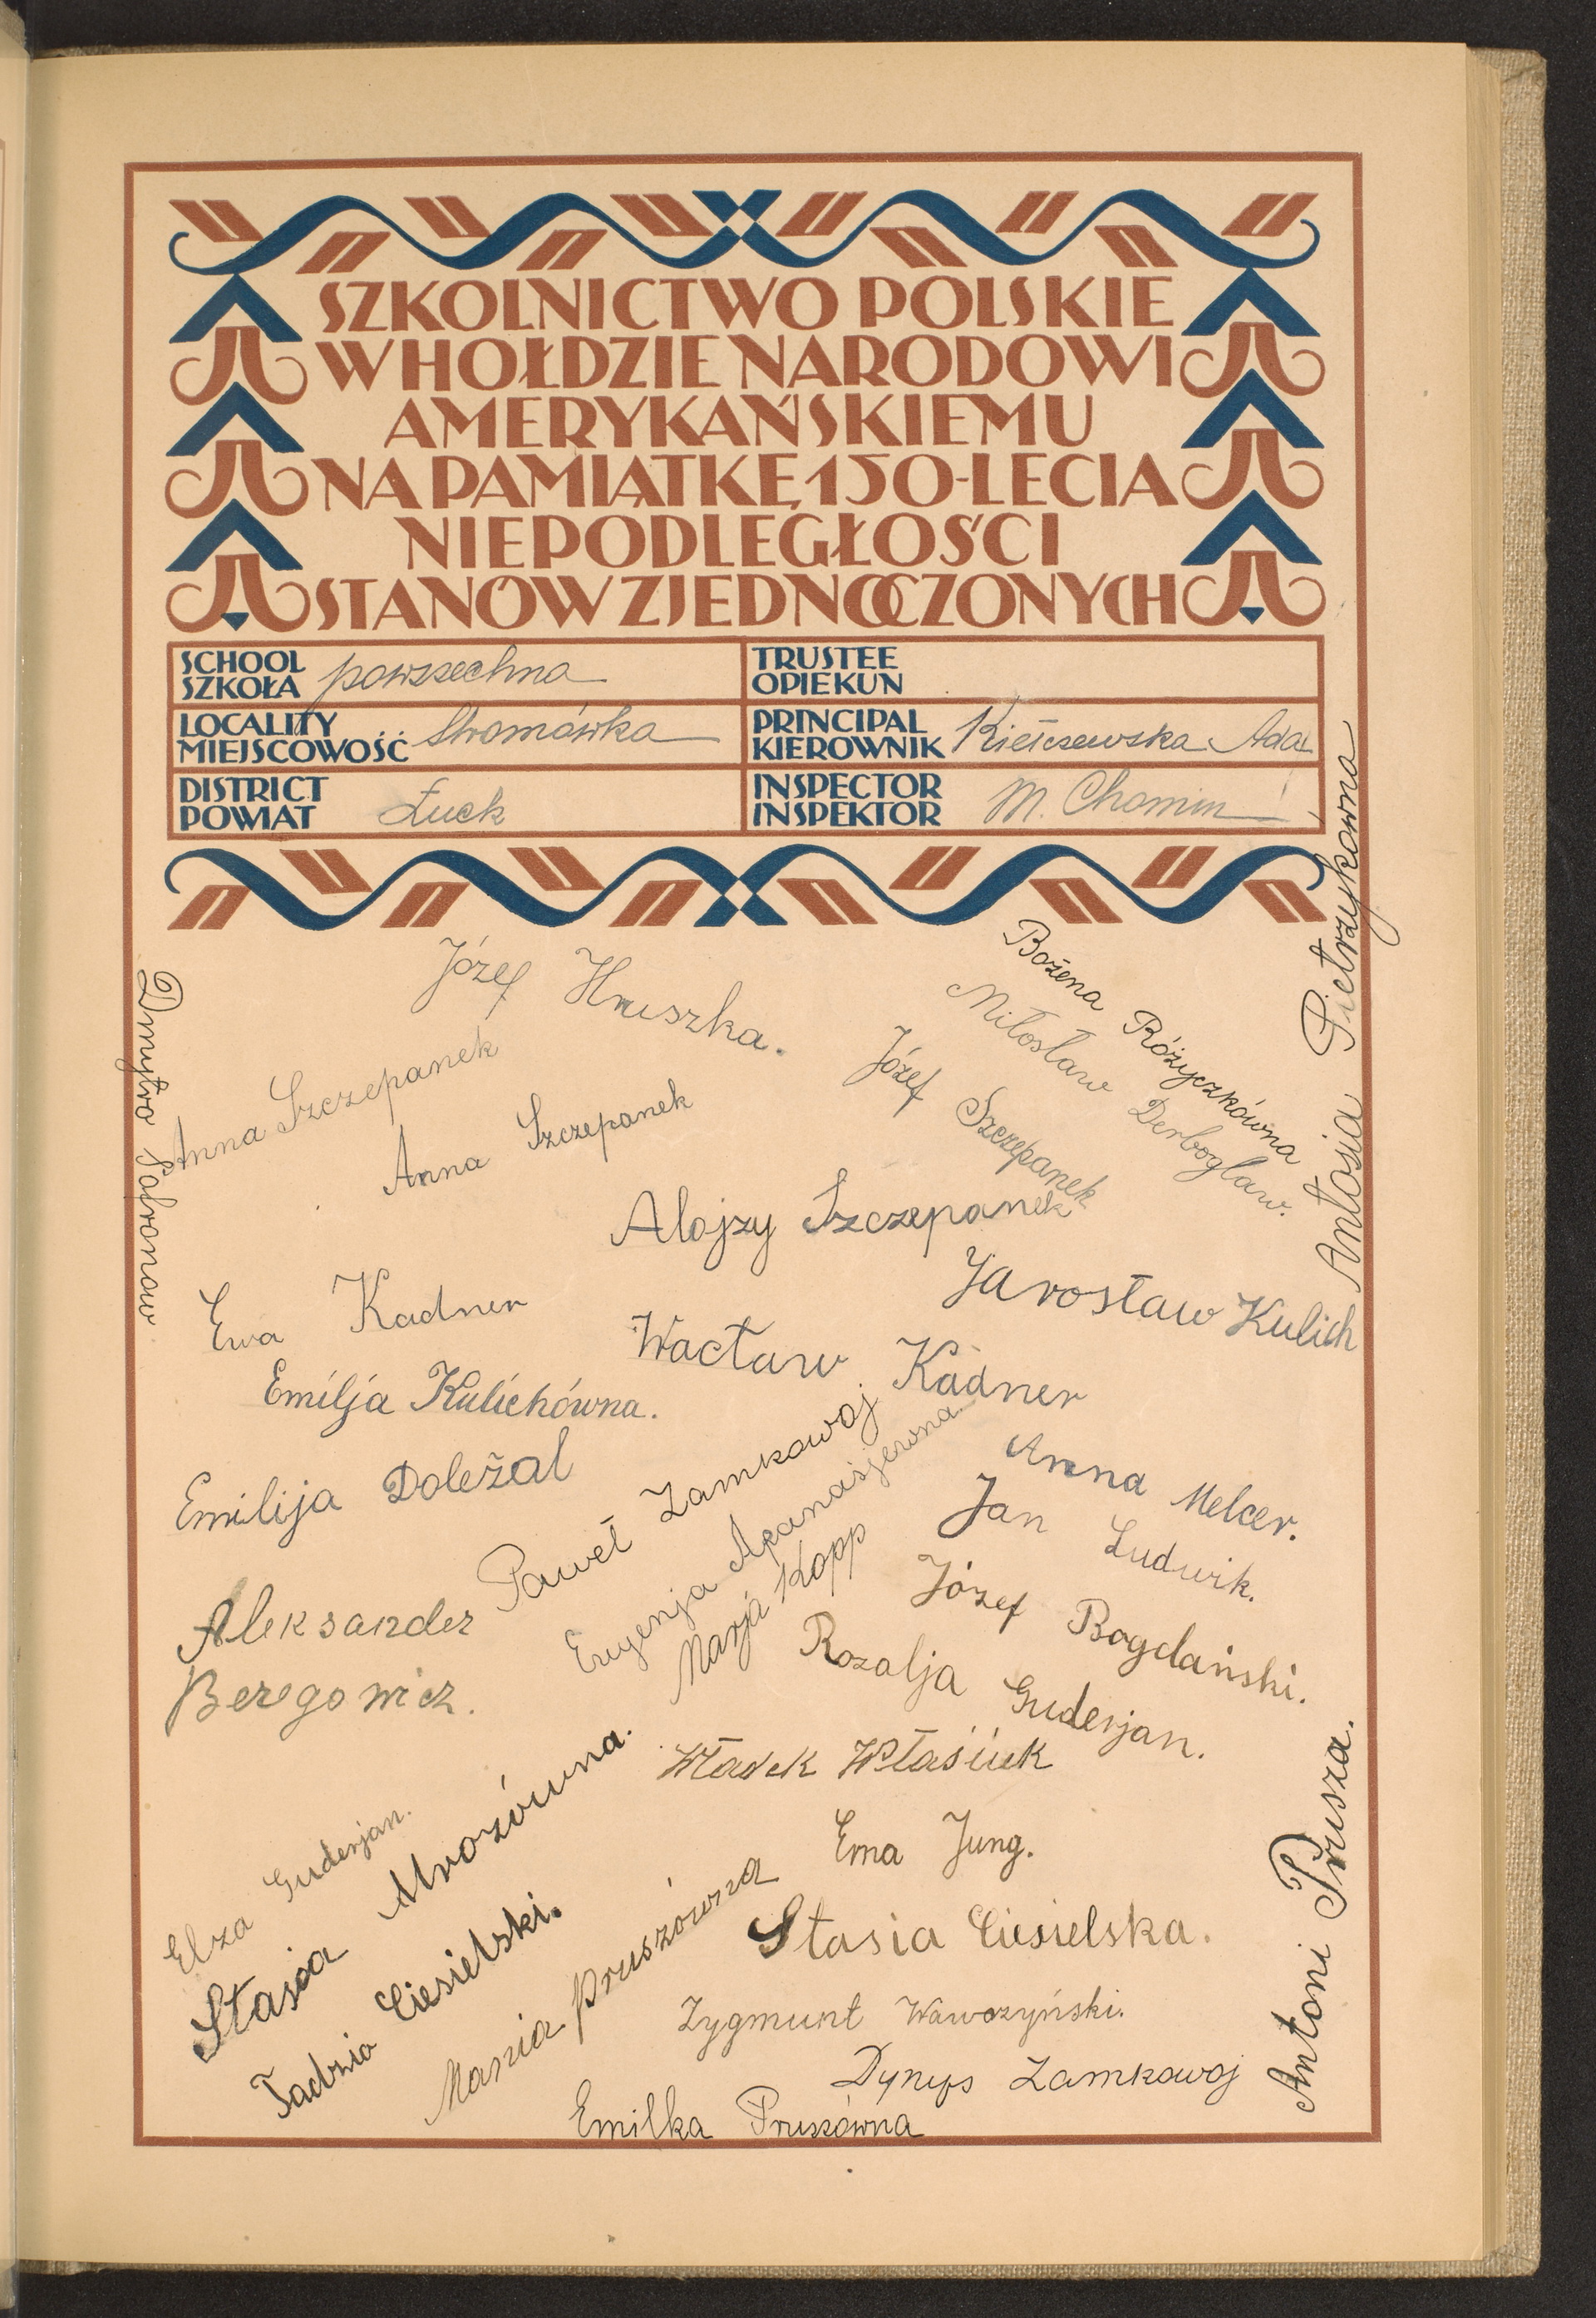 SZKOLNICTWO POLSKIE
W HOŁDZIE NARODOWI
AMERYKAŃSKIEMU
NA PAMIĄTKĘ 150-LECIA
NIEPODLEGŁOŚCI
STANÓW ZJEDNOCZONYCH
SCHOOL
SZKOŁA powszechna
TRUSTEE
OPIEKUN
LOCALITY
MIEJSCOWOŚĆ Stromówka
PRINCIPAL
KIEROWNIK Kiełczewska Ada
DISTRICT
POWIAT Łuck
INSPECTOR
INSPEKTOR M. Chomin
Antosia Pietrzykowna
Józef Hruszka.
Bożena Różyczkówna
Miłosław Derboglaw.
Dmytro Sofronow
Anna Szczepanek
Anna Szczepanek
Józef Szczepanek
Alojzy Szczepanek
Jarosław Kulich
Ewa Kadner
Wacław Kadner
Emilja Kulichówna.
Emilija Doležal
Paweł Zamkowoj
Eugenja Apanasjewna.
Marja Kopp
Anna Melcer.
Jan Ludwik.
Józef Bogdański.
Aleksander
Beregowicz.
Rozalja Guderjan.
Władek Własiuk
Elza Guderjan.
Stasia Mrozówna.
Tadzio Ciesielski.
Mania Pruszówna
Ema Jung.
Stasia Ciesielska.
Zygmunt Wawozyński.
Dynys Zamkowoj
Emilka Pruszówna
Antoni Prusza.